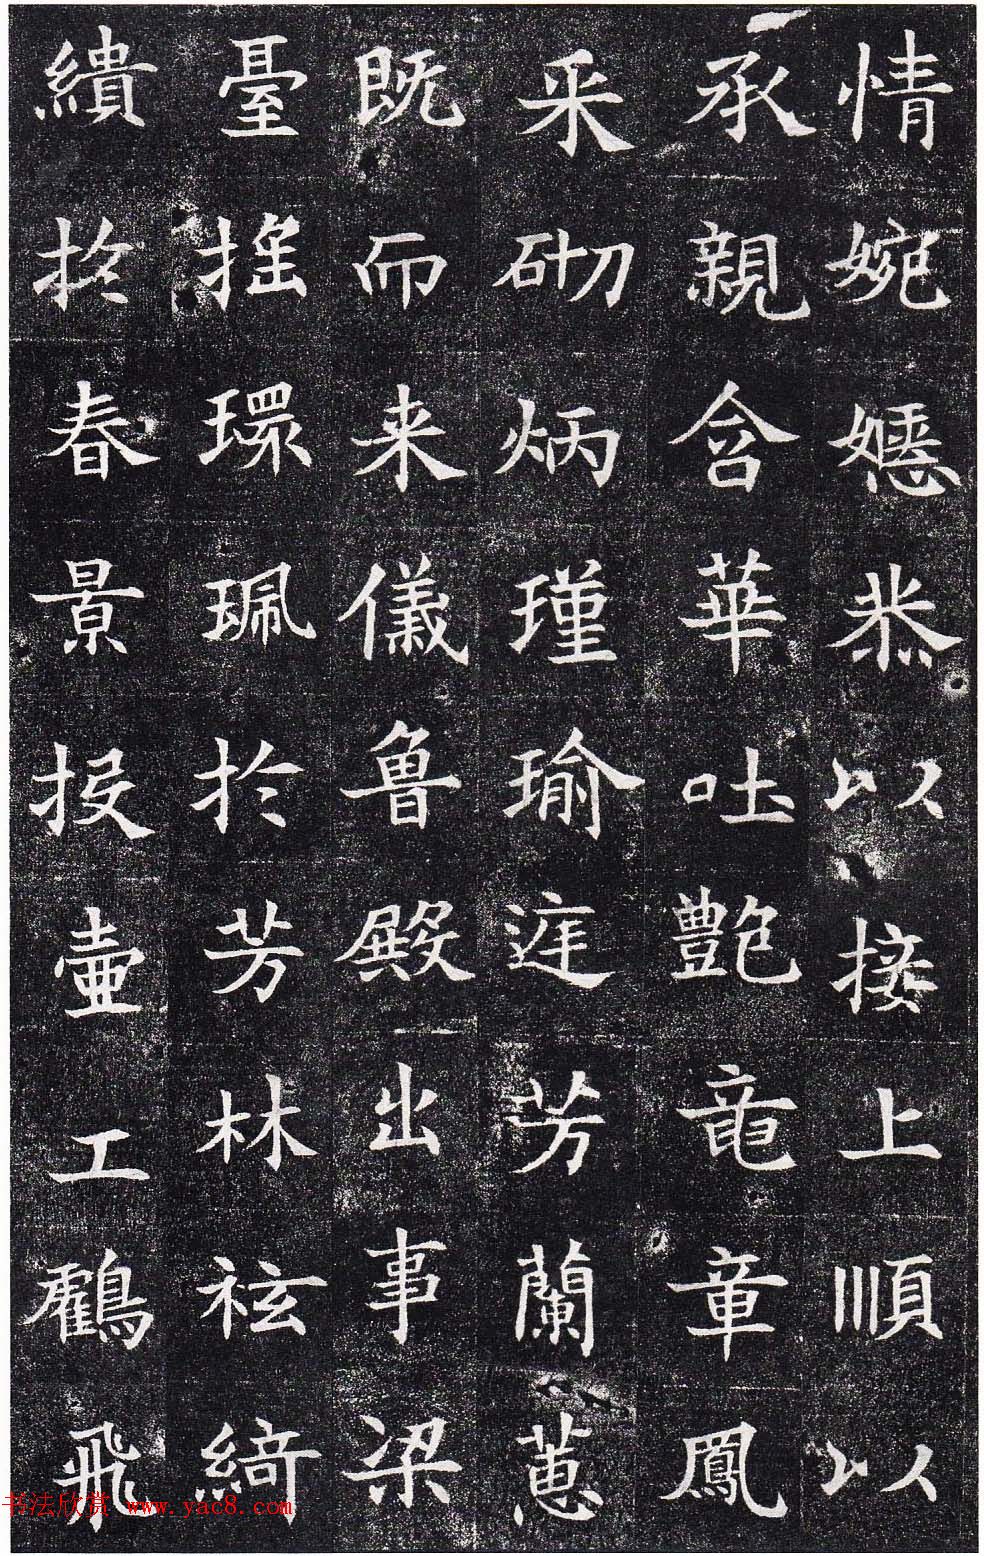 情婉嬺恭以接上順以
承親含華吐艷竜章鳳
采砌炳瑾瑜庭芳蘭蕙
既而来儀魯殿出事梁
臺搖環珮於芳林袨綺
繢於春景投壺工鶴飛
书法欣赏 www.yac8.com